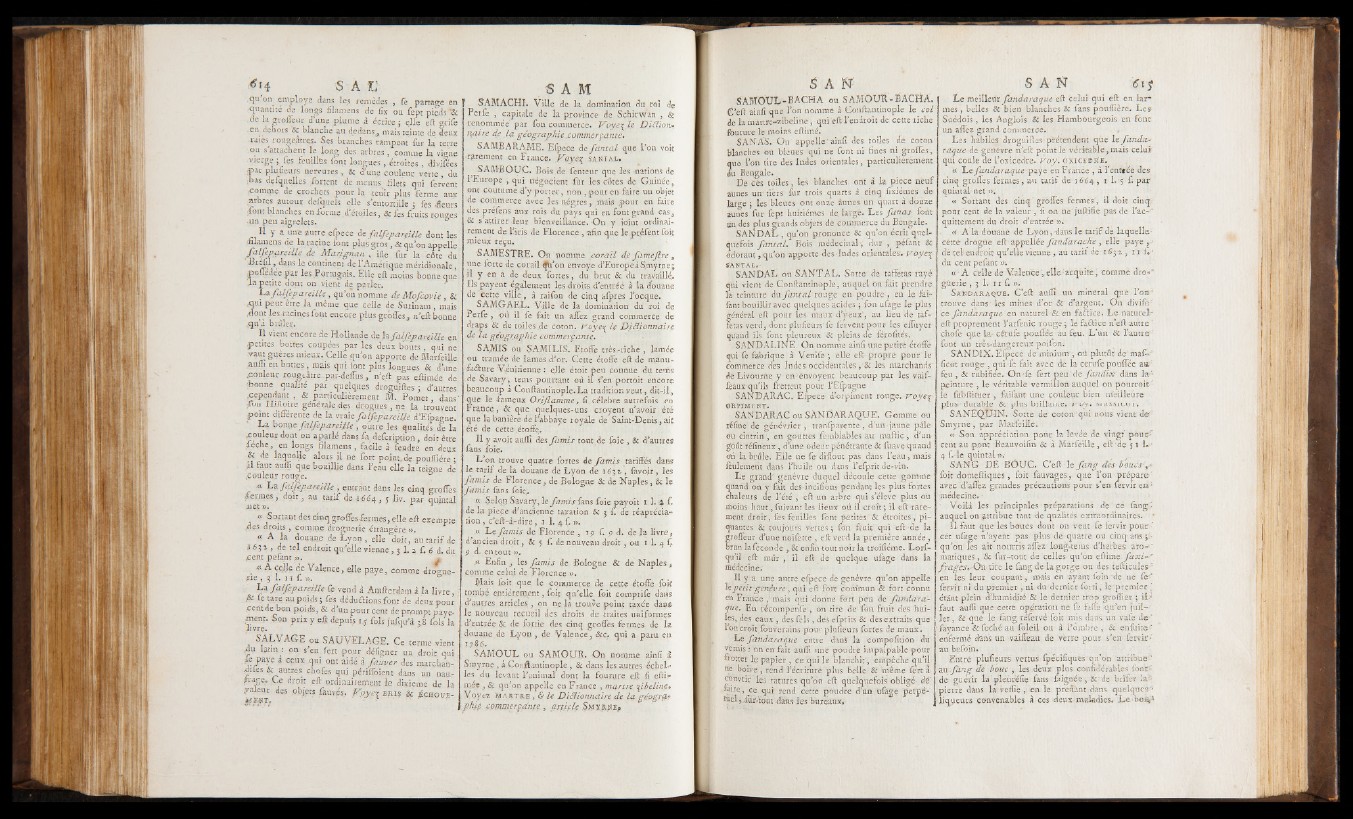 614 S A L
qu'on employe dans les remèdes, se partage en
quantité de longs filamens de six ou sept pieds &
de la grosseur d'une plume à écrire ; elle est grise
en dehors & blanche au dedans, mais teinte de deux
raies rougeâtres. Ses branches rampent sur la terre
ou s'attachent le long des arbres, comme la vigne
vierge ; ses feuilles sont longues, étroites, divisées
par plusieurs nervures, & d'une couleur verte, du
bas desquelles sortent de menus filets qui servent
comme de crochets pour la tenir plus ferme aux
arbres autour desquels elle s'entortille ; ses fleurs
sont blanches en forme d'étoiles, & ses fruits rouges
un peu aigrelets.
Il y a une autre espece de salsepareille dont les
filamens de la racine sont plus gros, & qu'on appelle
salsepareille de Marignan, isle sur la côte du
Brésil, dans le continent de l'Amérique méridionale,
possédée par les Portugais. Elle est moins bonne que
la petite dont on vient de parler.
La salsepareille, qu'on nomme de Moscovie, &
qui peut être la même que celle de Surinam, mais
dont les racines sont encore plus grosses, n'est bonne
qu'à brûler.
Il vient encore de Hollande de la salsepareille en
petites bottes coupées par les deux bouts, qui ne
vaut guères mieux. Celle qu'on apporte de Marseille
aussi en bottes, mais qui sont plus longues & d'une
couleur rougeâtre par-dessus, n'est pas estimée de
bonne qualité par quelques droguistes ; d'autres
cependant, & particulièrement M. Pomet, dans
son Histoire générale des drogues, ne la trouvent
point différente de la vraie salsepareille d'Espagne.
La bonne salsepareille, outre les qualités de la
couleur dont on a parlé dans sa description, doit être
sèche, en longs filamens, facile à fendre en deux
& de laquelle alors il ne sort point de poussière ;
il faut aussi que bouillie dans l'eau elle la teigne de
couleur rouge.
« La salsepareille, entrant dans les cinq grosses
fermes, doit, au tarif de 1664, 5 liv. par quintal
net ».
« Sortant des cinq grosses-fermes, elle est exempte
des droits, comme droguerie étrangère ».
« A la douane de Lyon, elle doit, au tarif de
1632, de tel endroit qu'elle vienne, 3 l. 2 s. 6 d. du
cent pesant ».
« A celle de Valence, elle paye, comme drogue-
rie, 3 l. 11 s. ».
La salsepareille se vend à Amsterdam à la livre,
& se tare au poids ; ses déductions sont de deux pour
cent de bon poids, & d'un pour cent de prompt paye-
ment. Son prix y est depuis 15 sols jusqu'à 38 sols la
livre.
SALVAGE ou SAUVELAGE. Ce terme vient
du latin : on s'en sert pour désigner un droit qui
se paye à ceux qui ont aidé à sauver des marchan-
dises & autres choses qui périssoient dans un nau-
frage. Ce droit est ordinairement le dixième de la
valeur des objets sauvés. Voyez BRIS & ÉCHOUE-
MENT.
S A M
SAMACHI. Ville de la domination du roi de
Perse, capitale de la province de Schirwan, &
renommée par son commerce. Voyez le Diction-
naire de la géographie commerçante.
SAMBARAME. Espece de santal que l'on voit
rarement en France. Voyez SANTAL.
SAMBOUC. Bois de senteur que les nations de
l'Europe, qui négocient sur les côtes de Guinée,
ont coutume d'y porter, non, pour en faire un objet
de commerce avec les nègres, mais pour en faire
des présens aux rois du pays qui en font grand cas,
& s'attirer leur bienveillance. On y joint ordinai-
rement de l'iris de Florence, afin que le présent soit
mieux reçu.
SAMESTRE. On nomme corail de samestre,
une sorte de corail qu'on envoye d'Europe à Smyrne ;
il y en a de deux sortes, du brut & du travaillé.
Ils payent également les droits d'entrée à la douane
de cette ville, à raison de cinq aspres l'ocque.
SAMGARL. Ville de la domination du roi de
Perse, où il se fait un assez grand commerce de
draps & de toiles de coton. Voyez le Dictionnaire
de la géographie commerçante.
SAMIS ou SAMILIS. Etoffe très-riche, lamée
ou tramée de lames d'or. Cette étoffe est de manu-
facture Vénitienne : elle étoit peu connue du tems
de Savary, tems pourtant où il s'en portoit encore
beaucoup à Constantinople. La tradition veut, dit-il,
que le fameux Oriflamme, si célèbre autrefois en
France, & que quelques-uns croyent n'avoir été
que la banière de l'abbaye royale de Saint-Denis, ait
été de cette étoffe.
Il y avoit aussi des samis tout de soie, & d'autres
sans soie.
L'on trouve quatre sortes de samis tariffés dans
le tarif de la douane de Lyon de 1632, savoir, les
samis de Florence, de Bologne & de Naples, & le
samis sans soie.
« Selon Savary, le samis sans soie payoit 1 l. 4 s.
de la piece d'ancienne taxation & 3 s. de réaprécia-
tion, c'est-à-dire, 1 l. 4 s. ».
« Le samis de Florence, 15 s. 9 d. de la livre,
d'ancien droit, & 5 s. de nouveau droit, ou 1 l. 4 s.
9 d. en tout ».
« Enfin, les samis de Bologne & de Naples,
comme celui de Florence ».
Mais soit que le commerce de cette étoffe soit
tombé entièrement, soit qu'elle soit comprise dans
d'autres articles, on ne la trouve point taxée dans
le nouveau recueil des droits de traites uniformes
d'entrée & de sortie des cinq grosses fermes de la
douane de Lyon, de Valence, &c. qui a paru en
1786.
SAMOUL ou SAMOUR. On nomme ainsi à
Smyrne, à Constantinople, & dans les autres échel-
les du levant l'animal dont la fourure est si esti-
mée, & qu'on appelle en France, martre zibeline.
Voyez MARTRE, & le Dictionnaire de la géogra-
phie commerçante, article SMYRNE.
S A N
SAMOUL-BACHA ou SAMOUR-BACHA.
C'est ainsi que l'on nomme à Constantinople le col
de la martre-zibeline, qui est l'endroit de cette riche
fourure le moins estimé.
SANAS. On appelle ainsi des toiles de coton
blanches ou bleues qui ne sont ni fines ni grosses,
que l'on tire des Indes orientales, particulièrement
du Bengale.
De ces toiles, les blanches ont à la piece neuf
aunes un tiers sur trois quarts à cinq sixièmes de
large ; les bleues ont onze aunes un quart à douze
aunes sur sept huitièmes de large. Les sanas sont
un des plus grands objets de commerce du Bengale.
SANDAL, qu'on prononce & qu'on écrit quel-
quefois santal. Bois médecinal, dur, pesant &
odorant, qu'on apporte des Indes orientales. Voyez
SANTAL.
SANDAL ou SANTAL. Sorte de taffetas rayé
qui vient de Constantinople, auquel on fait prendre
la teinture du santal rouge en poudre, en le fai-
sant bouillir avec quelques acides ; son usage le plus
général est pour les maux d'yeux, au lieu de taf-
fetas verd, dont plusieurs se servent pour les essuyer
quand ils sont pleureux & pleins de sérosités.
SANDALINE. On nomme ainsi une petite étoffe
qui se fabrique à Venise ; elle est propre pour le
commerce des Indes occidentales, & les marchands
de Livourne y en envoyent beaucoup par les vais-
seaux qu'ils frettent pour l'Espagne.
SANDARAC. Espece d'orpiment rouge. Voyez
ORPIMENT.
SANDARAC ou SANDARAQUE. Gomme ou
résine de génévrier, transparente, d'un jaune pâle
ou citrin, en gouttes semblables au mastic, d'un
goût résineux, d'une odeur pénétrante & suave quand
on la brûle. Elle ne se dissout pas dans l'eau, mais
seulement dans l'huile ou dans l'esprit-de-vin.
Le grand genévre duquel découle cette gomme
quand on y fait des incisions pendant les plus fortes
chaleurs de l'été, est un arbre qui s'éleve plus ou
moins haut, suivant les lieux où il croît ; il est rare-
ment droit, ses feuilles sont petites & étroites, pi-
quantes & toujours vertes ; son fruit qui est de la
grosseur d'une noisette, est verd la première année,
brun la seconde, & enfin tout noir la troisième. Lors-
qu'il est mûr, il est de quelque usage dans la
médecine.
Il y a une autre espece de genévre qu'on appelle
le petit genévre, qui est fort commun & fort connu
en France, mais qui donne fort peu de sandara-
que. En récompense, on tire de son fruit des hui-
les, des eaux, des sels, des esprits & des extraits que
l'on croit souverains pour plusieurs sortes de maux.
Le sandaraque entre dans la composition du
vernis : on en fait aussi une poudre impalpable pour
frotter le papier, ce qui le blanchit, empêche qu'il
ne boive, rend l'écriture plus belle & même sert à
couvrir les ratures qu'on est quelquefois obligé de
faire, ce qui rend cette poudre d'un usage perpé-
tuel, sur-tout dans les bureaux.
S A N 615
Le meilleur sandaraque est celui qui est en lar-
mes, belles & bien blanches & sans poussière. Les
Suédois, les Anglois & les Hambourgeois en font
un assez grand commerce.
Les habiles droguistes prétendent que le sanda-
raque de genevre n'est point le véritable, mais celui
qui coule de l'oxicedre. Voy. OXICEDRE.
« Le sandaraque paye en France, à l'entrée des
cinq grosses fermes, au tarif de 1664, 1 l. 5 s. par
quintal net ».
« Sortant des cinq grosses fermes, il doit cinq
pour cent de la valeur, si on ne justifie pas de l'ac-
quittement du droit d'entrée ».
« A la douane de Lyon, dans le tarif de laquelle
cette drogue est appellée sandarache, elle paye,
de tel endroit qu'elle vienne, au tarif de 1632, 11 s.
du cent pesant ».
« A celle de Valence, elle acquite, comme dro-
guerie, 3 l. 11 s. ».
SANDARAQUE. C'est aussi un minéral que l'on
trouve dans les mines d'or & d'argent. On divise
ce sandaraque en naturel & en factice. Le naturel
est proprement l'arsenic rouge ; le factice n'est autre
chose que la céruse poussée au feu. L'un & l'autre
sont un très-dangereux poison.
SANDIX. Espece de minium, ou plutôt de mas-
sicot rouge, qui se fait avec de la ceruse poussée au
feu, & rubifiée. On se sert peu de sandix dans la
peinture, le véritable vermillon auquel on pourroit
le substituer, faisant une couleur bien meilleure
plus durable & plus brillante. Voy. MASSICOT.
SANEQUIN. Sorte de coton qui nous vient de
Smyrne, par Marseille.
« Son appréciation pour la levée de vingt pour
cent au pont Beauvoisin & à Marseille, est de 31 l.
4 s. le quintal ».
SANG DE BOUC. C'est le sang des boucs,
soit domestiques, soit sauvages, que l'on prépare
avec d'assez grandes précautions pour s'en servir en
médecine.
Voilà les principales préparations de ce sang
auquel on attribue tant de qualités extraordinaires.
Il faut que les boucs dont on veut se servir pour
cet usage n'ayent pas plus de quatre ou cinq ans,
qu'on les ait nourris assez long-tems d'herbes aro-
matiques, & sur-tout de celles qu'on estime saxi-
frages. On tire le sang de la gorge ou des testicules
en les leur coupant, mais en ayant soin de ne se
servir ni du premier, ni du dernier sorti, le premier
étant plein d'humidité & le dernier trop grossier ; il
faut aussi que cette opération ne se fasse qu'en juil-
let, & que le sang réservé soit mis dans un vase de
fayance & séché au soleil ou à l'ombre, & ensuite
enfermé dans un vaisseau de verre pour s'en servir
au besoin.
Entre plusieurs vertus spécifiques qu'on attribue
au sang de bouc, les deux plus considérables sont
de guérir la pleurésie sans saignée, & de briser la
pierre dans la vessie, en le prenant dans quelques
liqueurs convenables à ces deux maladies. Le bouq